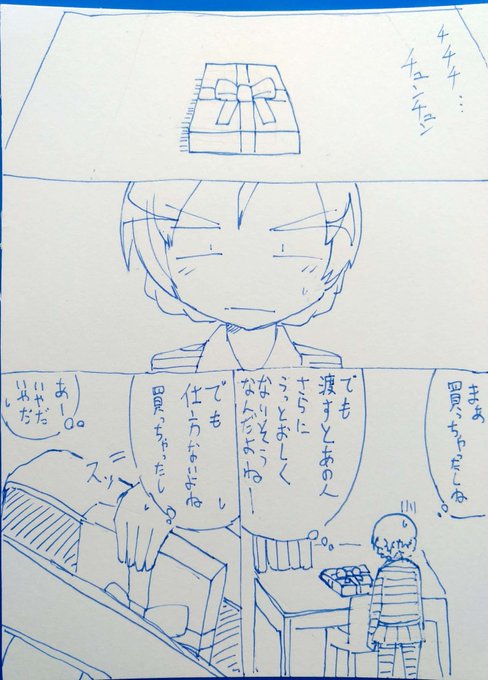 チチチ…
チュンチュン
まぁ
買っちゃったしね
でも
渡すとあの人
さらに
うっとおしく
なりそう
なんだよねー
でも
仕方ないよね
買っちゃったし
スッ
あー
いやだ
いやだ